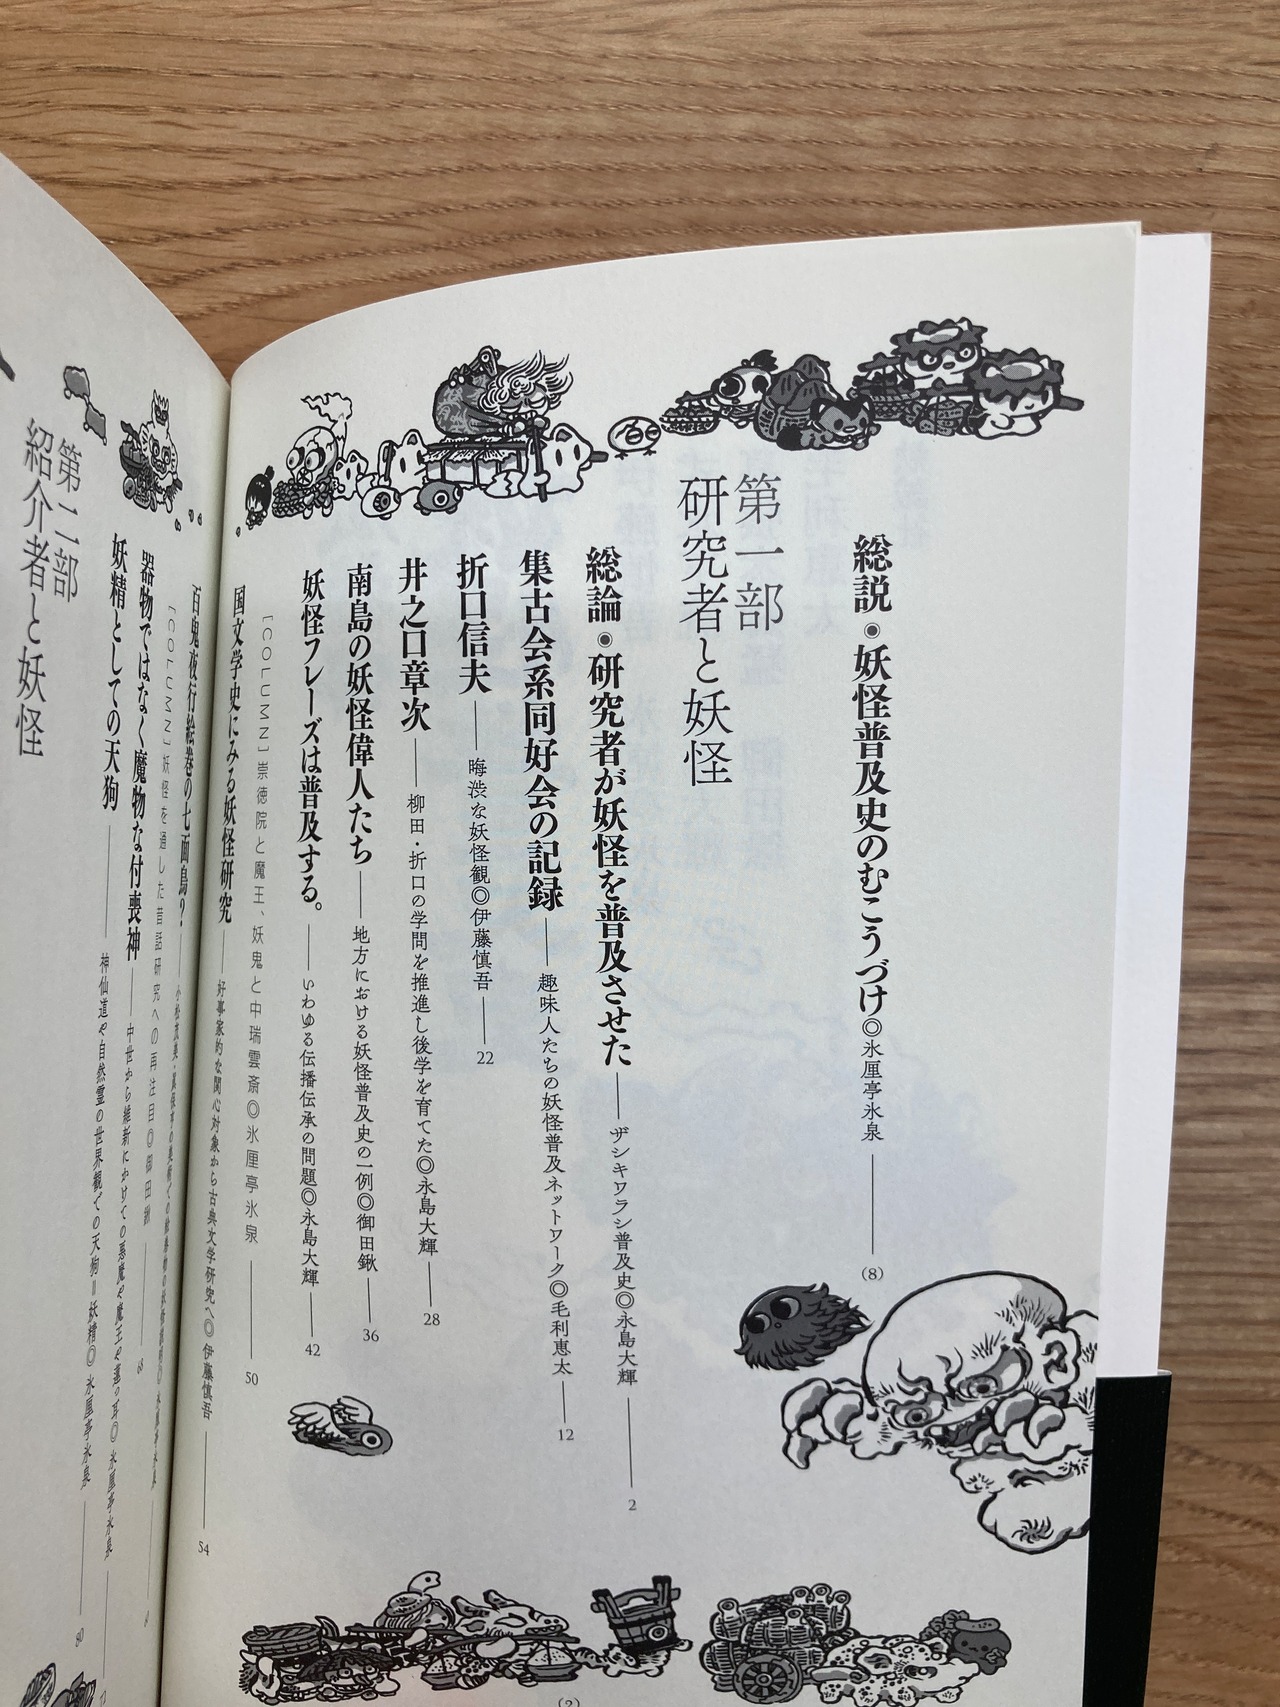 総説●妖怪普及史のむこうづけ◎氷厘亭氷泉――(8)
第一部
研究者と妖怪
総論●研究者が妖怪を普及させた――ザシキワラシ普及史◎永島大輝――2
集古会系同好会の記録――趣味人たちの妖怪普及ネットワーク◎毛利恵太――12
折口信夫――晦渋な妖怪観◎伊藤慎吾――22
井之口章次――柳田・折口の学問を推進し後学を育てた◎永島大輝――28
南島の妖怪偉人たち――地方における妖怪普及史の一例◎御田鍬――36
妖怪フレーズは普及する。――いわゆる伝播伝承の問題◎永島大輝――42
[COLUMN]崇徳院と魔王、妖鬼と中瑞雲斎◎氷厘亭氷泉――50
国文学史にみる妖怪研究――好事家的な関心対象から古典文学研究へ◎伊藤慎吾――54
百鬼夜行絵巻の七面鳥？――小松茂美・真保亨の美術での絵巻物の妖怪説明◎氷厘亭氷泉
[COLUMN]妖怪を通した昔話研究への再注目◎御田鍬――68
器物ではなく魔物な付喪神――中世から維新にかけての悪魔や魔王や違った耳◎氷厘亭氷泉
妖精としての天狗――神仙道や自然霊の世界観での天狗＝妖精◎氷厘亭氷泉――80
第二部
紹介者と妖怪
(2)